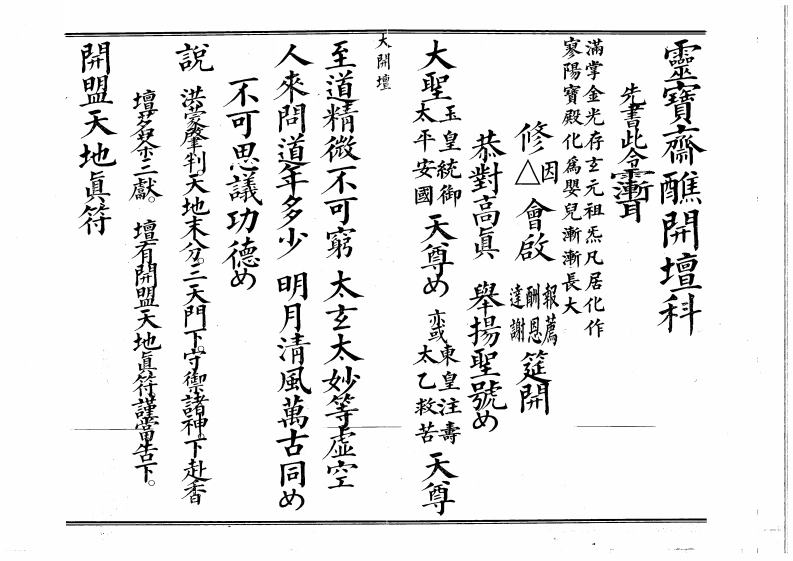 靈寶齋醮開壇科
先書此
滿掌金光存玄元祖炁凡居化作
寥陽寶殿化為嬰兒漸漸長大
修因△會啟報薦酬恩達謝筵開
恭對高眞 舉揚聖號め
大聖玉皇統御太平安國天尊め亦或東皇注壽太乙救苦天尊
大開壇
至道精微不可窮 太玄太妙等虛空
人來問道年多少 明月清風萬古同め
不可思議功德め
說洪蒙肇判。天地未分。三天門下。守禦諸神。下赴香
壇。三獻。壇有開盟天地眞符謹當告下。
開盟天地眞符